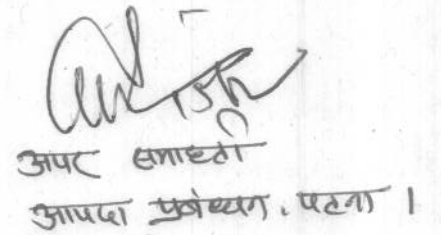 अपर समाहर्ता
आपदा प्रबंधन, पटना ।